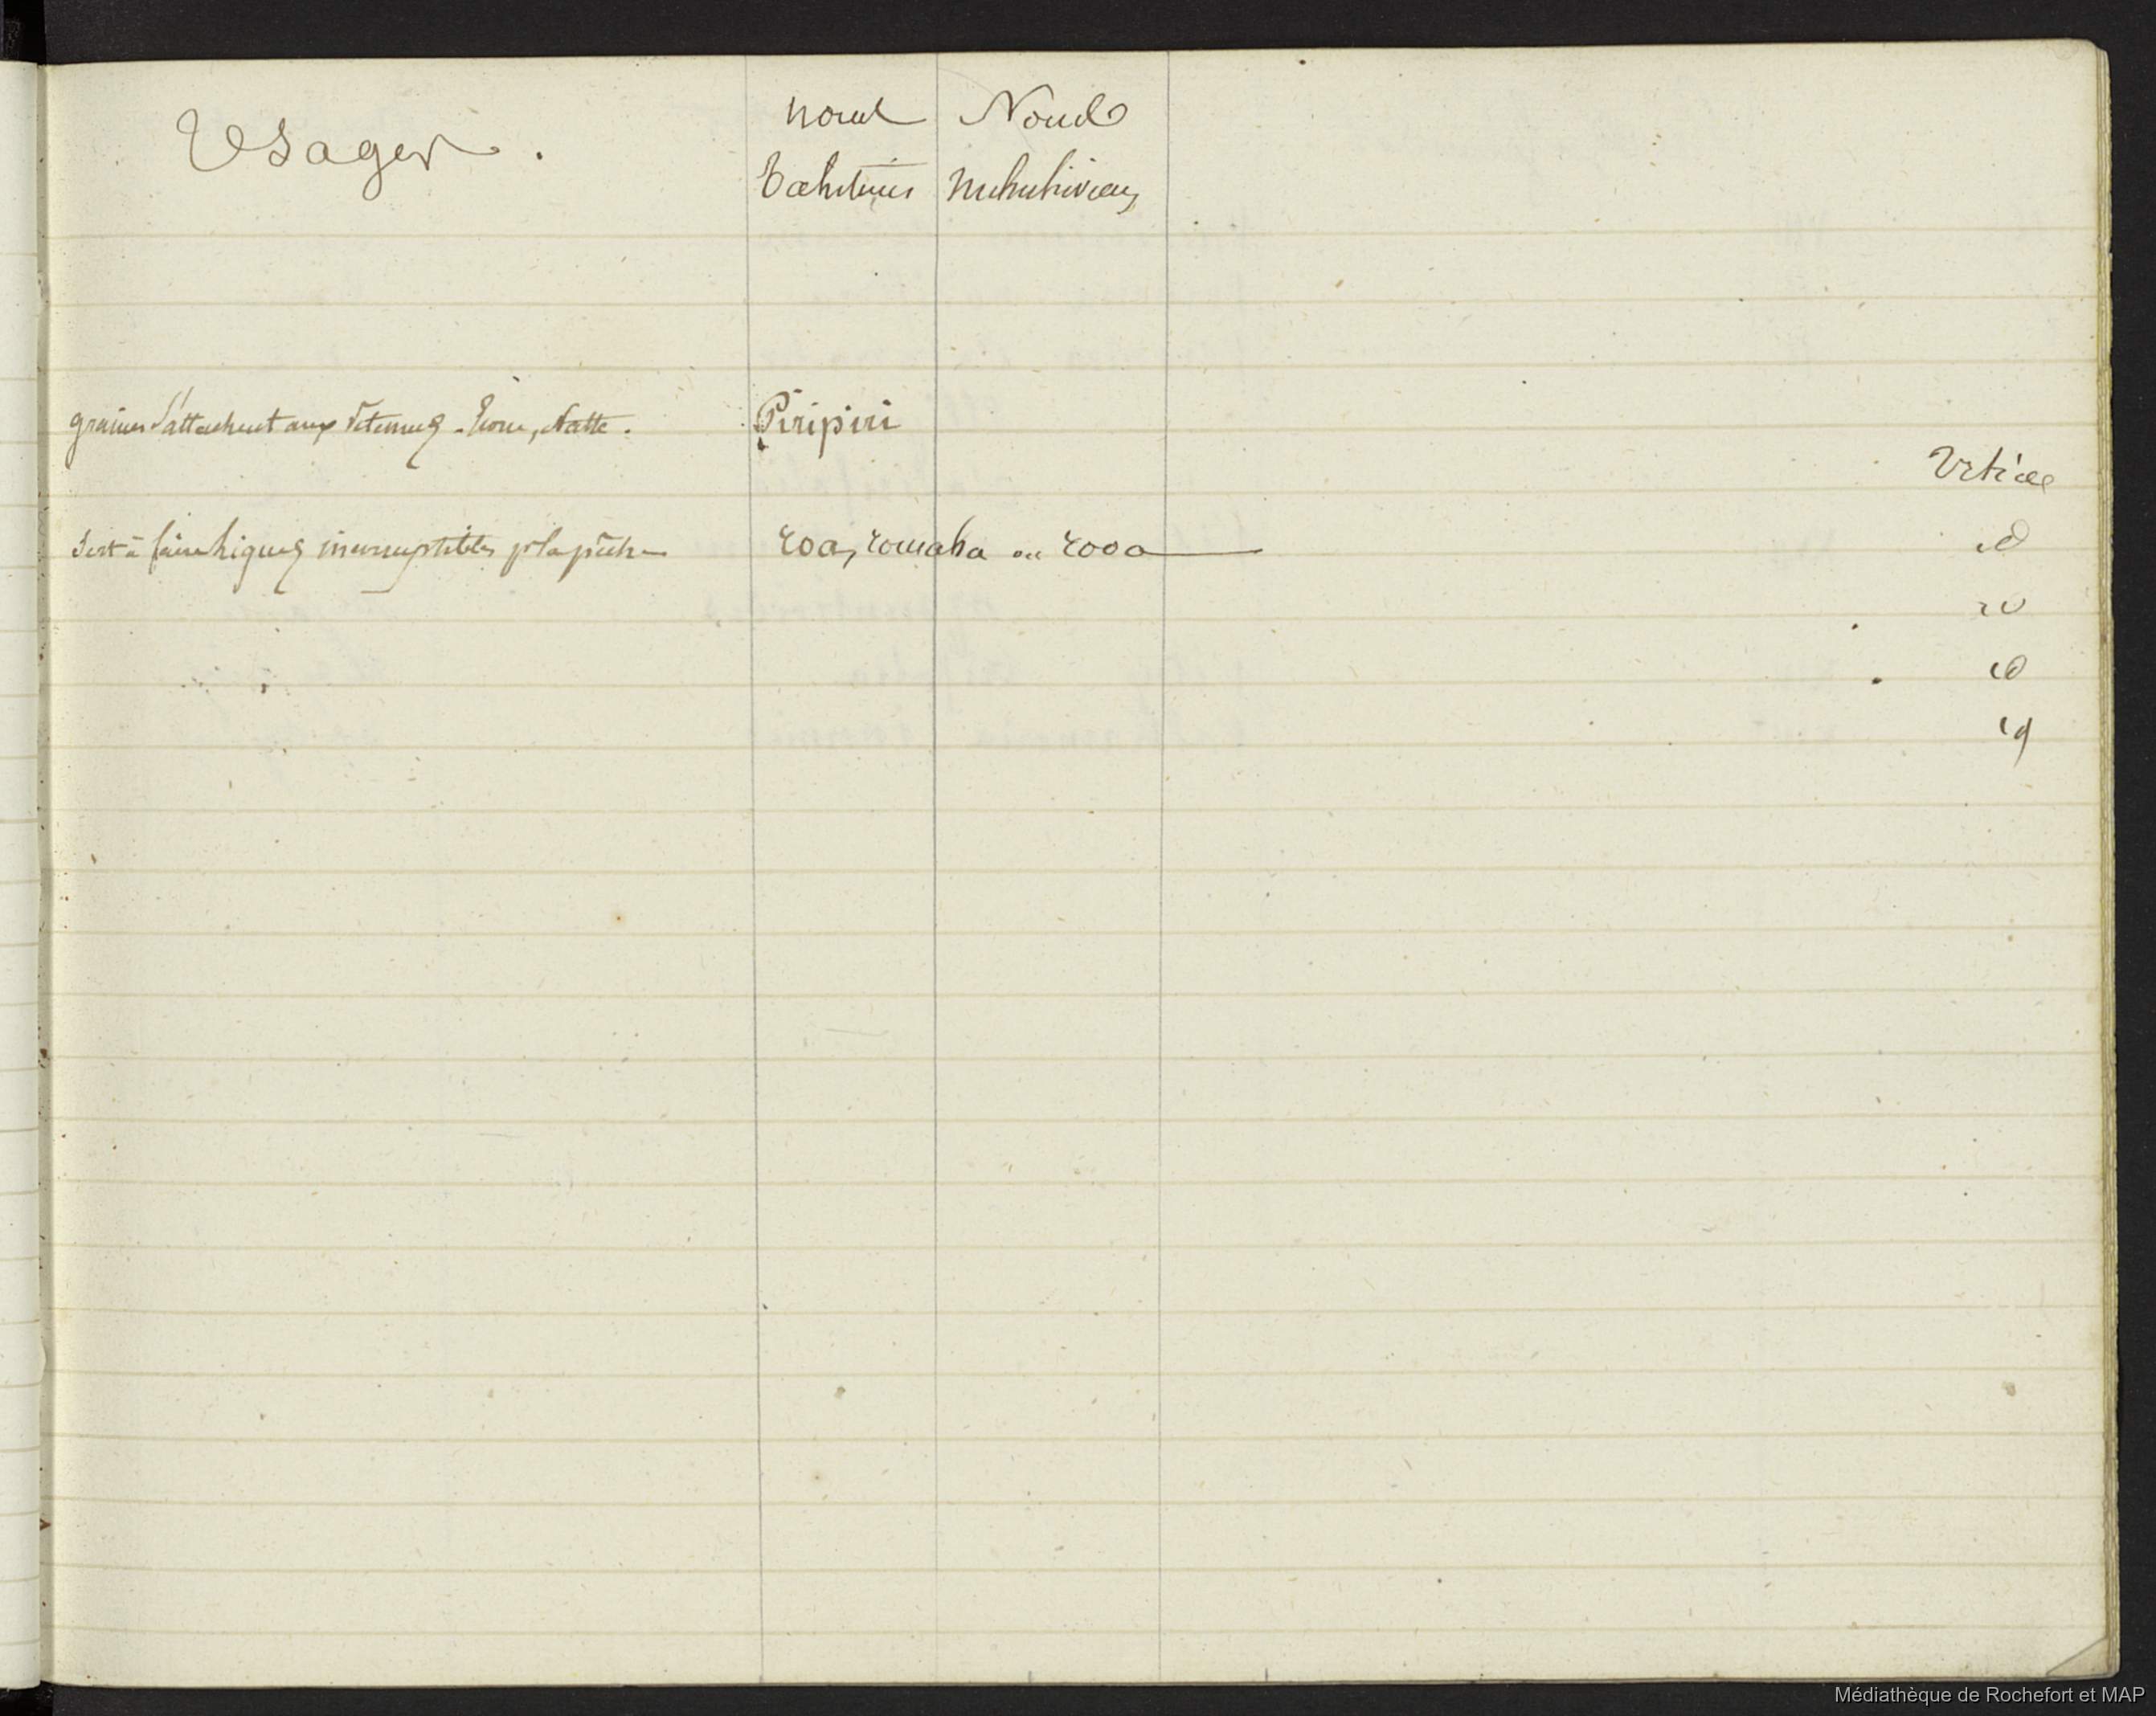 Usages.
Noms Noms
Taehitiens Nuhuhiviens
graines s'attachent aux vêtements. Natte. Piripiri
Urticee
Sert à faire lignes incorruptibles pr la pêche roa, romaha ou rooa id
id
id
id
Médiathèque de Rochefort et MAP